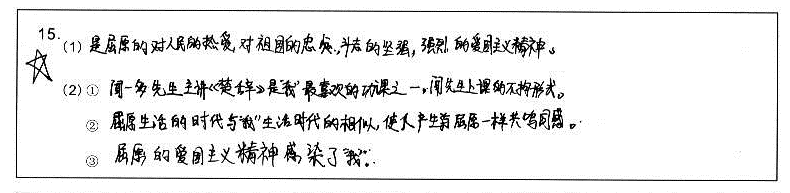 15.(1) 是屈原的对人民的热爱,对祖国的忠贞,斗志的坚强,强烈的爱国主义精神。
(2) ① 闻一多先生主讲《楚辞》是"我"最喜欢的功课之一,闻先生上课的不拘形式。
② 屈原生活的时代与"我"生活时代的相似,使人产生与屈原一样共鸣同感。
③ 屈原的爱国主义精神感染了"我"。